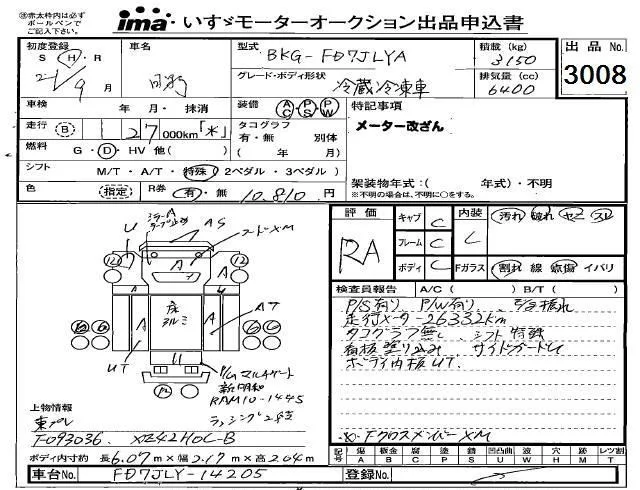 ※赤太枠内は必ず
ボールペンで
ご記入下さい。
ima いすゞモーターオークション出品申込書
出品No.
3008
初度登録
S H・R
21 9月
車名
型式
BKG-FD7JLYA
積載(kg)
3150
グレード・ボディ形状
冷蔵冷凍車
排気量(cc)
6400
車検 年 月・抹消
装備 AC PS PW
特記事項
メーター改ざん
走行 B 27 000km「*」
タコグラフ
有・無 別体
( 年 月)
燃料 G・D・HV 他( )
シフト M/T・A/T・特殊(2ペダル・3ペダル)
架装物年式:( 年式)・不明
※不明の場合は、不明に○をする。
色 (指定) R券 有・無 10,810円
評価 RA
キャブ C
フレーム C
ボディ C
内装 C
汚れ 破れ セミ スレ
Fガラス 割れ 線 点傷 イバリ
検査員報告 A/C( ) B/T( )
P/S有り P/W有り
走行メーター26332km
タコグラフ無し シフト特殊
看板塗り込み サイドガードU
ボディ内板UT.
Fクロスメンバー XM
U
A5
フードXM
12
12
A
A
A
A
U
床
アルミ
AT
UT
U
P/Gマルチゲート
新明和
RAM10-1445
ラッシング2段
上物情報
東プレ
F093036 XZ42HOC-B
ボディ内寸約 長6.07m×幅2.17m×高2.04m
車台No. FD7JLY-14205
登録No.
記号
傷 A
板金 B
腐 C
塗 P
錆 S
凹凸曲 U
波 W
穴 H
跡 M
レツ割 T